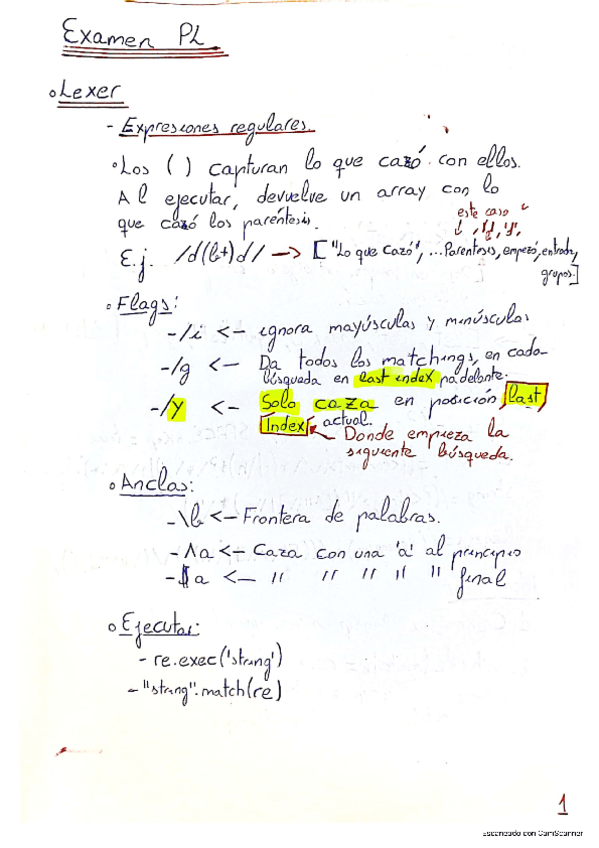 Examen PL
Lexer
- Expresiones regulares.
Los ( ) capturan lo que cazó con ellos.
Al ejecutar, devuelve un array con lo
que cazó los paréntesis.
este caso
E.j. /d(b+)d/ —> ["Lo que Cazó", ...Parentesis, empezó, entrada,
grupos.]
Flags:
- /i <- ignora mayúsculas y minúsculas
- /g <- Da todos los matchings, en cada
búsqueda en last index padelante.
- /y <- Solo caza en posición last
Index actual.
Donde empieza la
siguiente búsqueda.
Anclas:
- \b <- Frontera de palabras.
- ^a <- Caza con una 'a' al principio
- $a <- " " " " " final
Ejecutar:
- re.exec('string')
- "string".match(re)
1
Escaneado con CamScanner